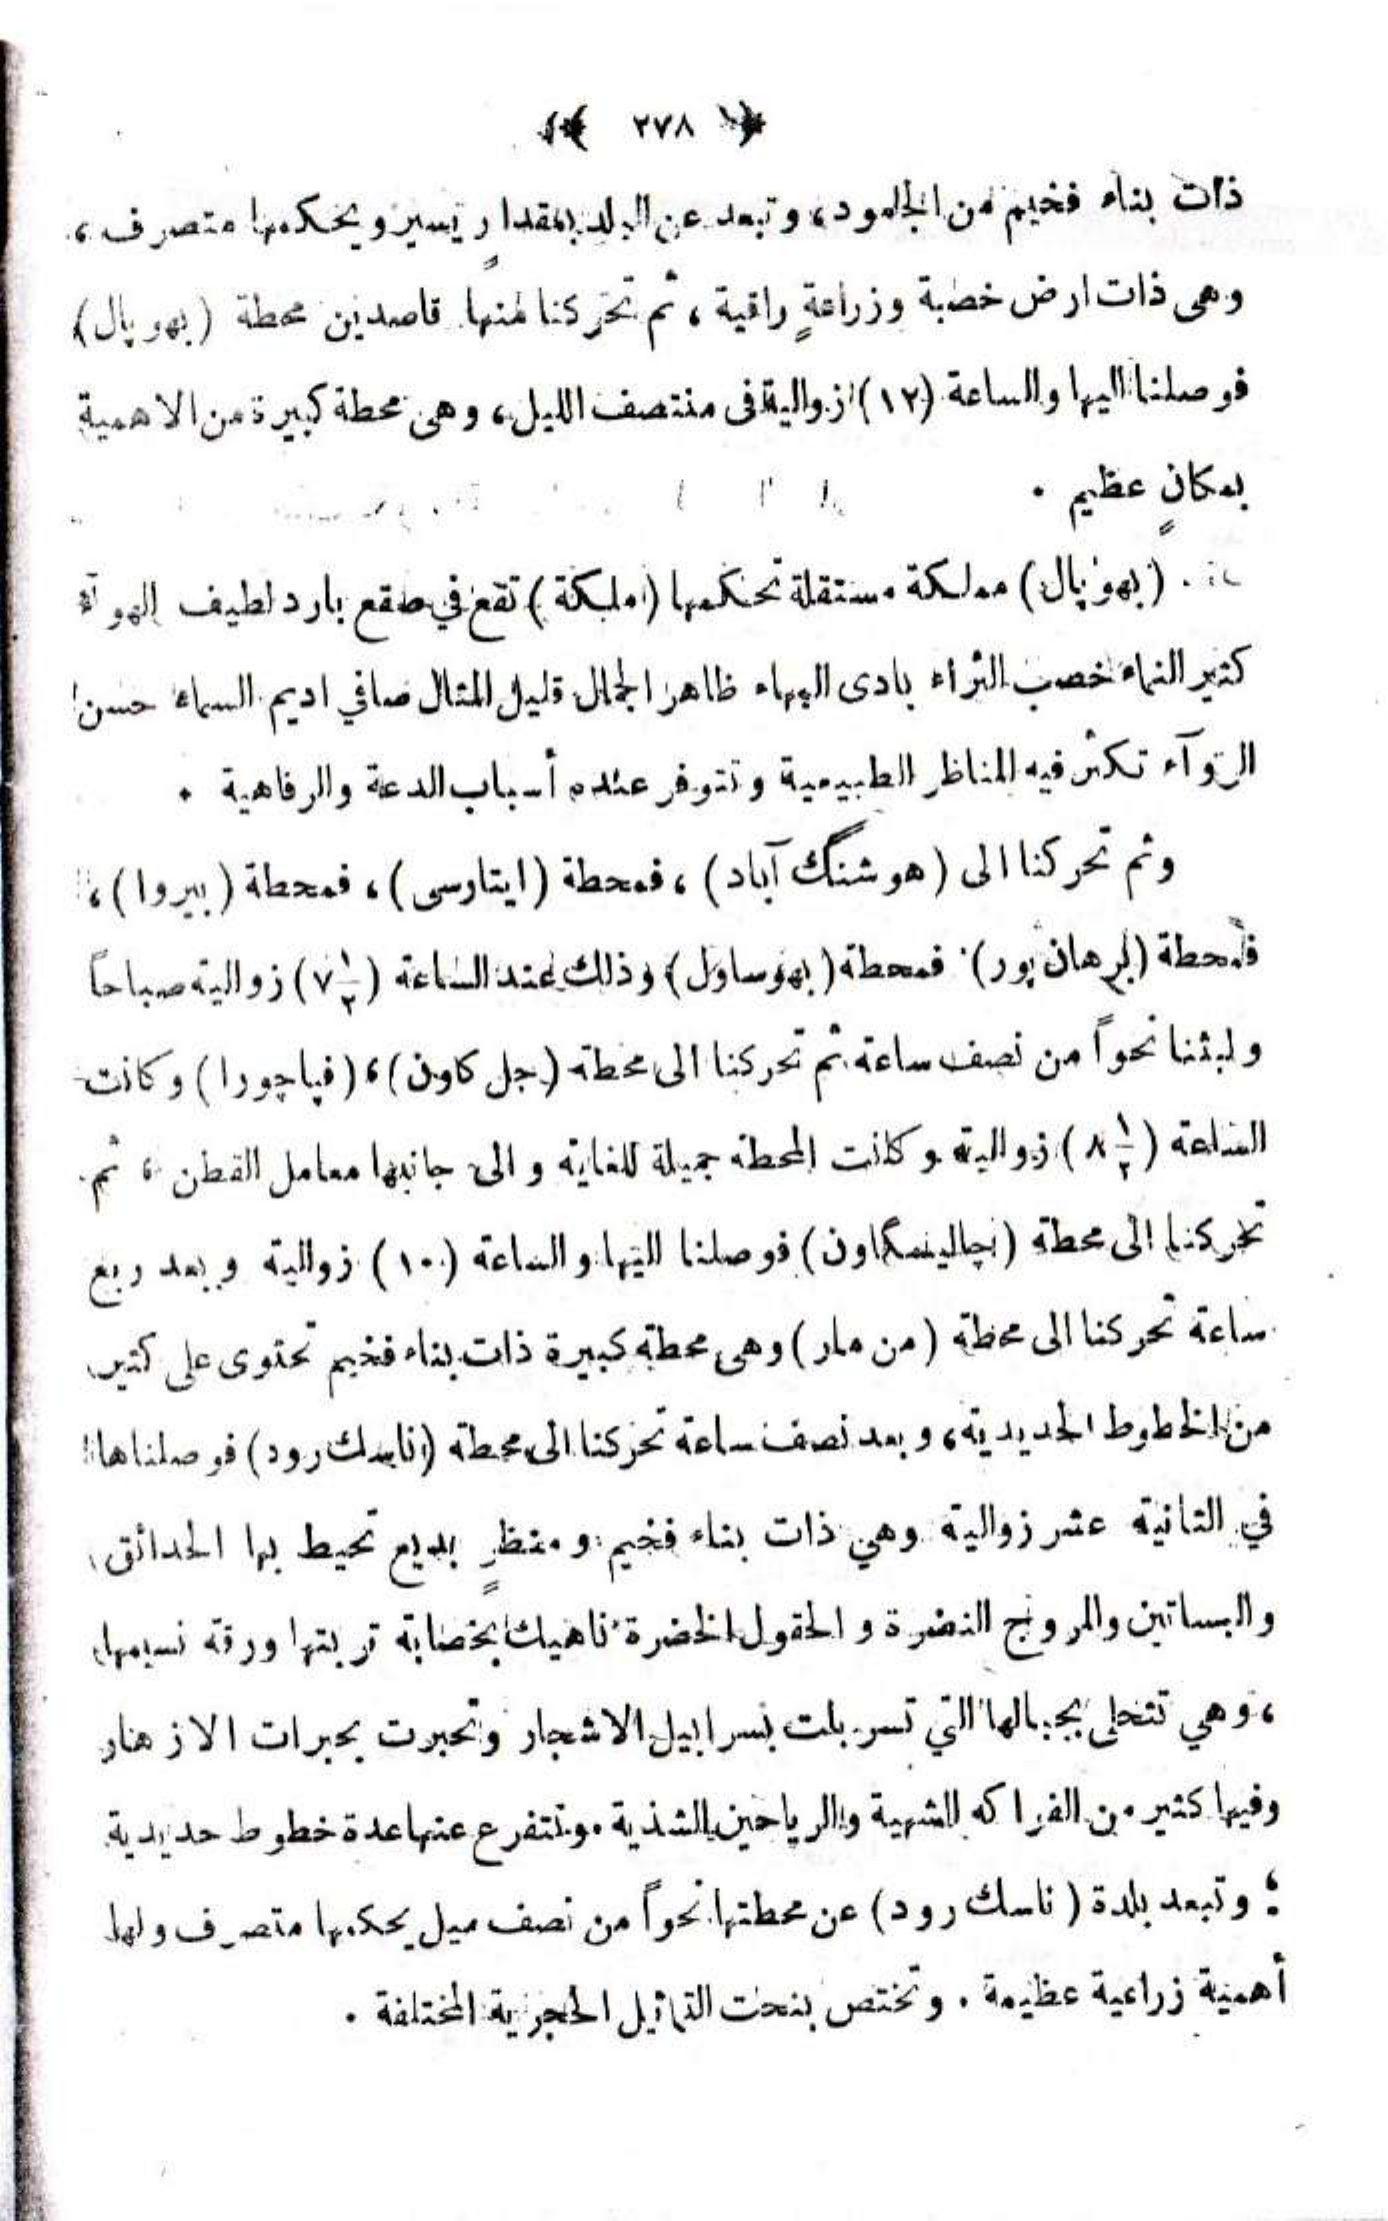 ٢٧٨
ذات بناء فخيم من الجلمود، وتبعد عن البلد بمقدارٍ يسير ويحكمها متصرف،
وهى ذات ارض خصبة وزراعةٍ راقية، ثم تحركنا منها قاصدين محطة (بهوپال)
فوصلنا اليها والساعة (١٢) زوالية فى منتصف الليل، وهى محطة كبيرة من الاهمية
بمكانٍ عظيم .
(بهوپال) مملكة مستقلة تحكمها (ملكة) تقع في صقع بارد لطيف الهوآء
كثير النماء خصب الثراء بادى البهاء ظاهر الجمال قليل المثال صافي اديم السماء حسن
الروآء تكثر فيه المناظر الطبيعية وتتوفر عنده أسباب الدعة والرفاهية .
وثم تحركنا الى (هوشنگ آباد)، فمحطة (ايتارسى)، فمحطة (بيروا)،
فمحطة (برهان پور) فمحطة (بهوساول) وذلك عند الساعة (٧١/٢) زوالية صباحاً
ولبثنا نحواً من نصف ساعة ثم تحركنا الى محطة (جل كاون)، (فپاچورا) وكانت
الساعة (٨١/٢) زوالية وكانت المحطة جميلة للغاية والى جانبها معامل القطن، ثم
تحركنا الى محطة (چاليسگاون) فوصلنا اليها والساعة (١٠) زوالية وبعد ربع
ساعة تحركنا الى محطة (من مار) وهى محطة كبيرة ذات بناء فخيم تحتوى على كثير
من الخطوط الحديدية، وبعد نصف ساعة تحركنا الى محطة (ناسك رود) فوصلناها
في الثانية عشر زوالية وهي ذات بناء فخيم ومنظرٍ بديع تحيط بها الحدائق
والبساتين والمروج النضرة والحقول الخضرة ناهيك بخصابة تربتها ورقة نسيمها
، وهي تتحلى بجبالها التي تسربلت بسرابيل الاشجار وتحبرت بحبرات الازهار
وفيها كثير من الفواكه الشهية والرياحين الشذية وتتفرع عنها عدة خطوط حديدية
؛ وتبعد بلدة (ناسك رود) عن محطتها نحواً من نصف ميل يحكمها متصرف ولها
أهمية زراعية عظيمة . وتختص بنحت التماثيل الحجرية المختلفة .